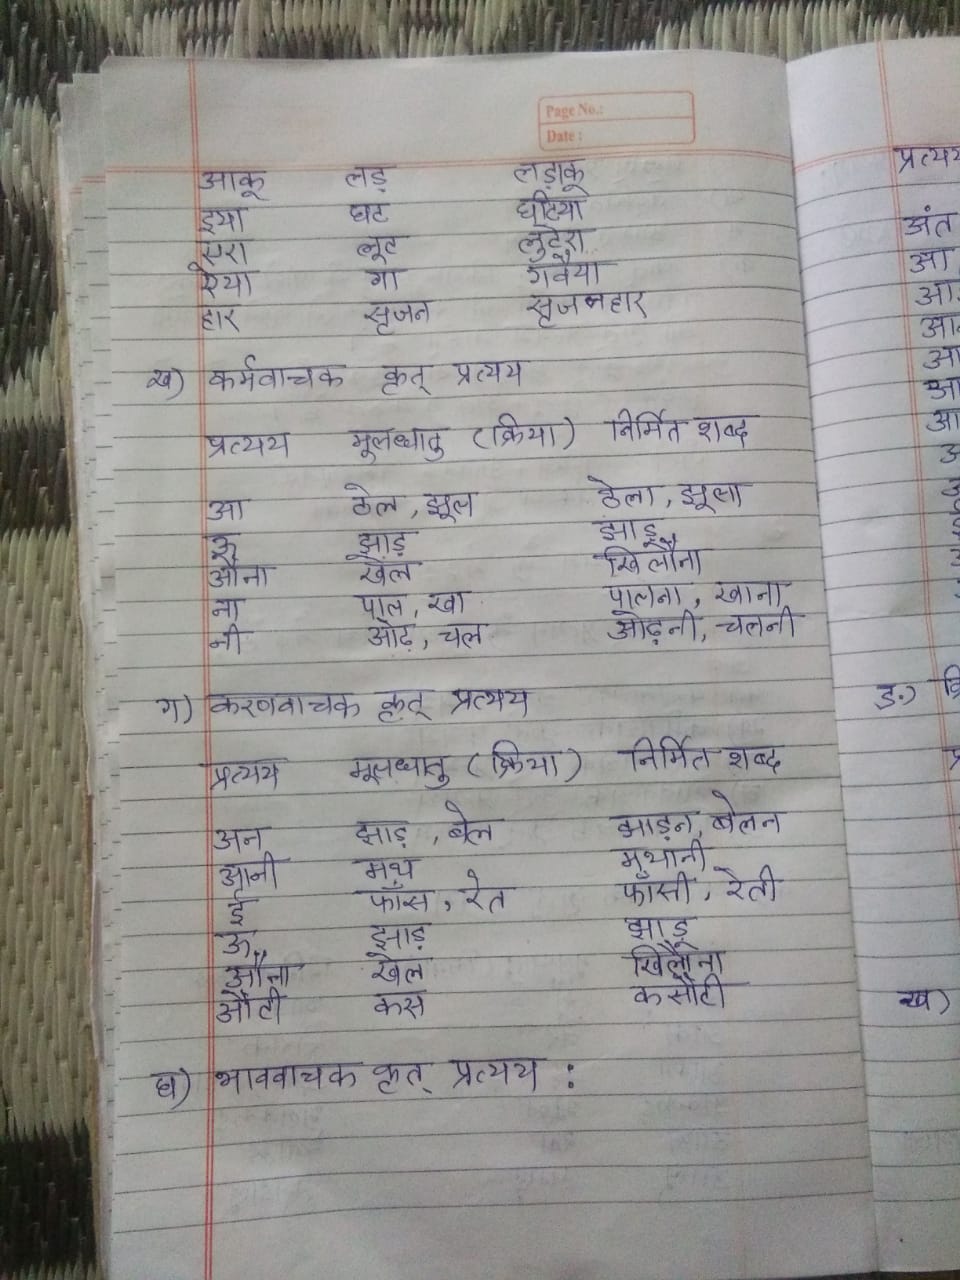 Page No.:
Date :
आकू लड़ लड़ाकू
इया घट घटिया
एरा लूट लुटेरा
ऐया गा गवैया
हार सृजन सृजनहार
ख) कर्मवाचक कृत् प्रत्यय
प्रत्यय मूलधातु (क्रिया) निर्मित शब्द
आ ठेल, झूल ठेला, झूला
ऊ झाड़ झाड़ू
औना खेल खिलौना
ना पाल, खा पालना, खाना
नी ओढ़, चल ओढ़नी, चलनी
ग) करणवाचक कृत् प्रत्यय
प्रत्यय मूलधातु (क्रिया) निर्मित शब्द
अन झाड़, बेल झाड़न, बेलन
आनी मथ मथानी
ई फाँस, रेत फाँसी, रेती
ऊ झाड़ झाड़ू
औना खेल खिलौना
औटी कस कसौटी
घ) भाववाचक कृत् प्रत्यय :
प्रत्यय
अंत
आ
ङ.)
ख)